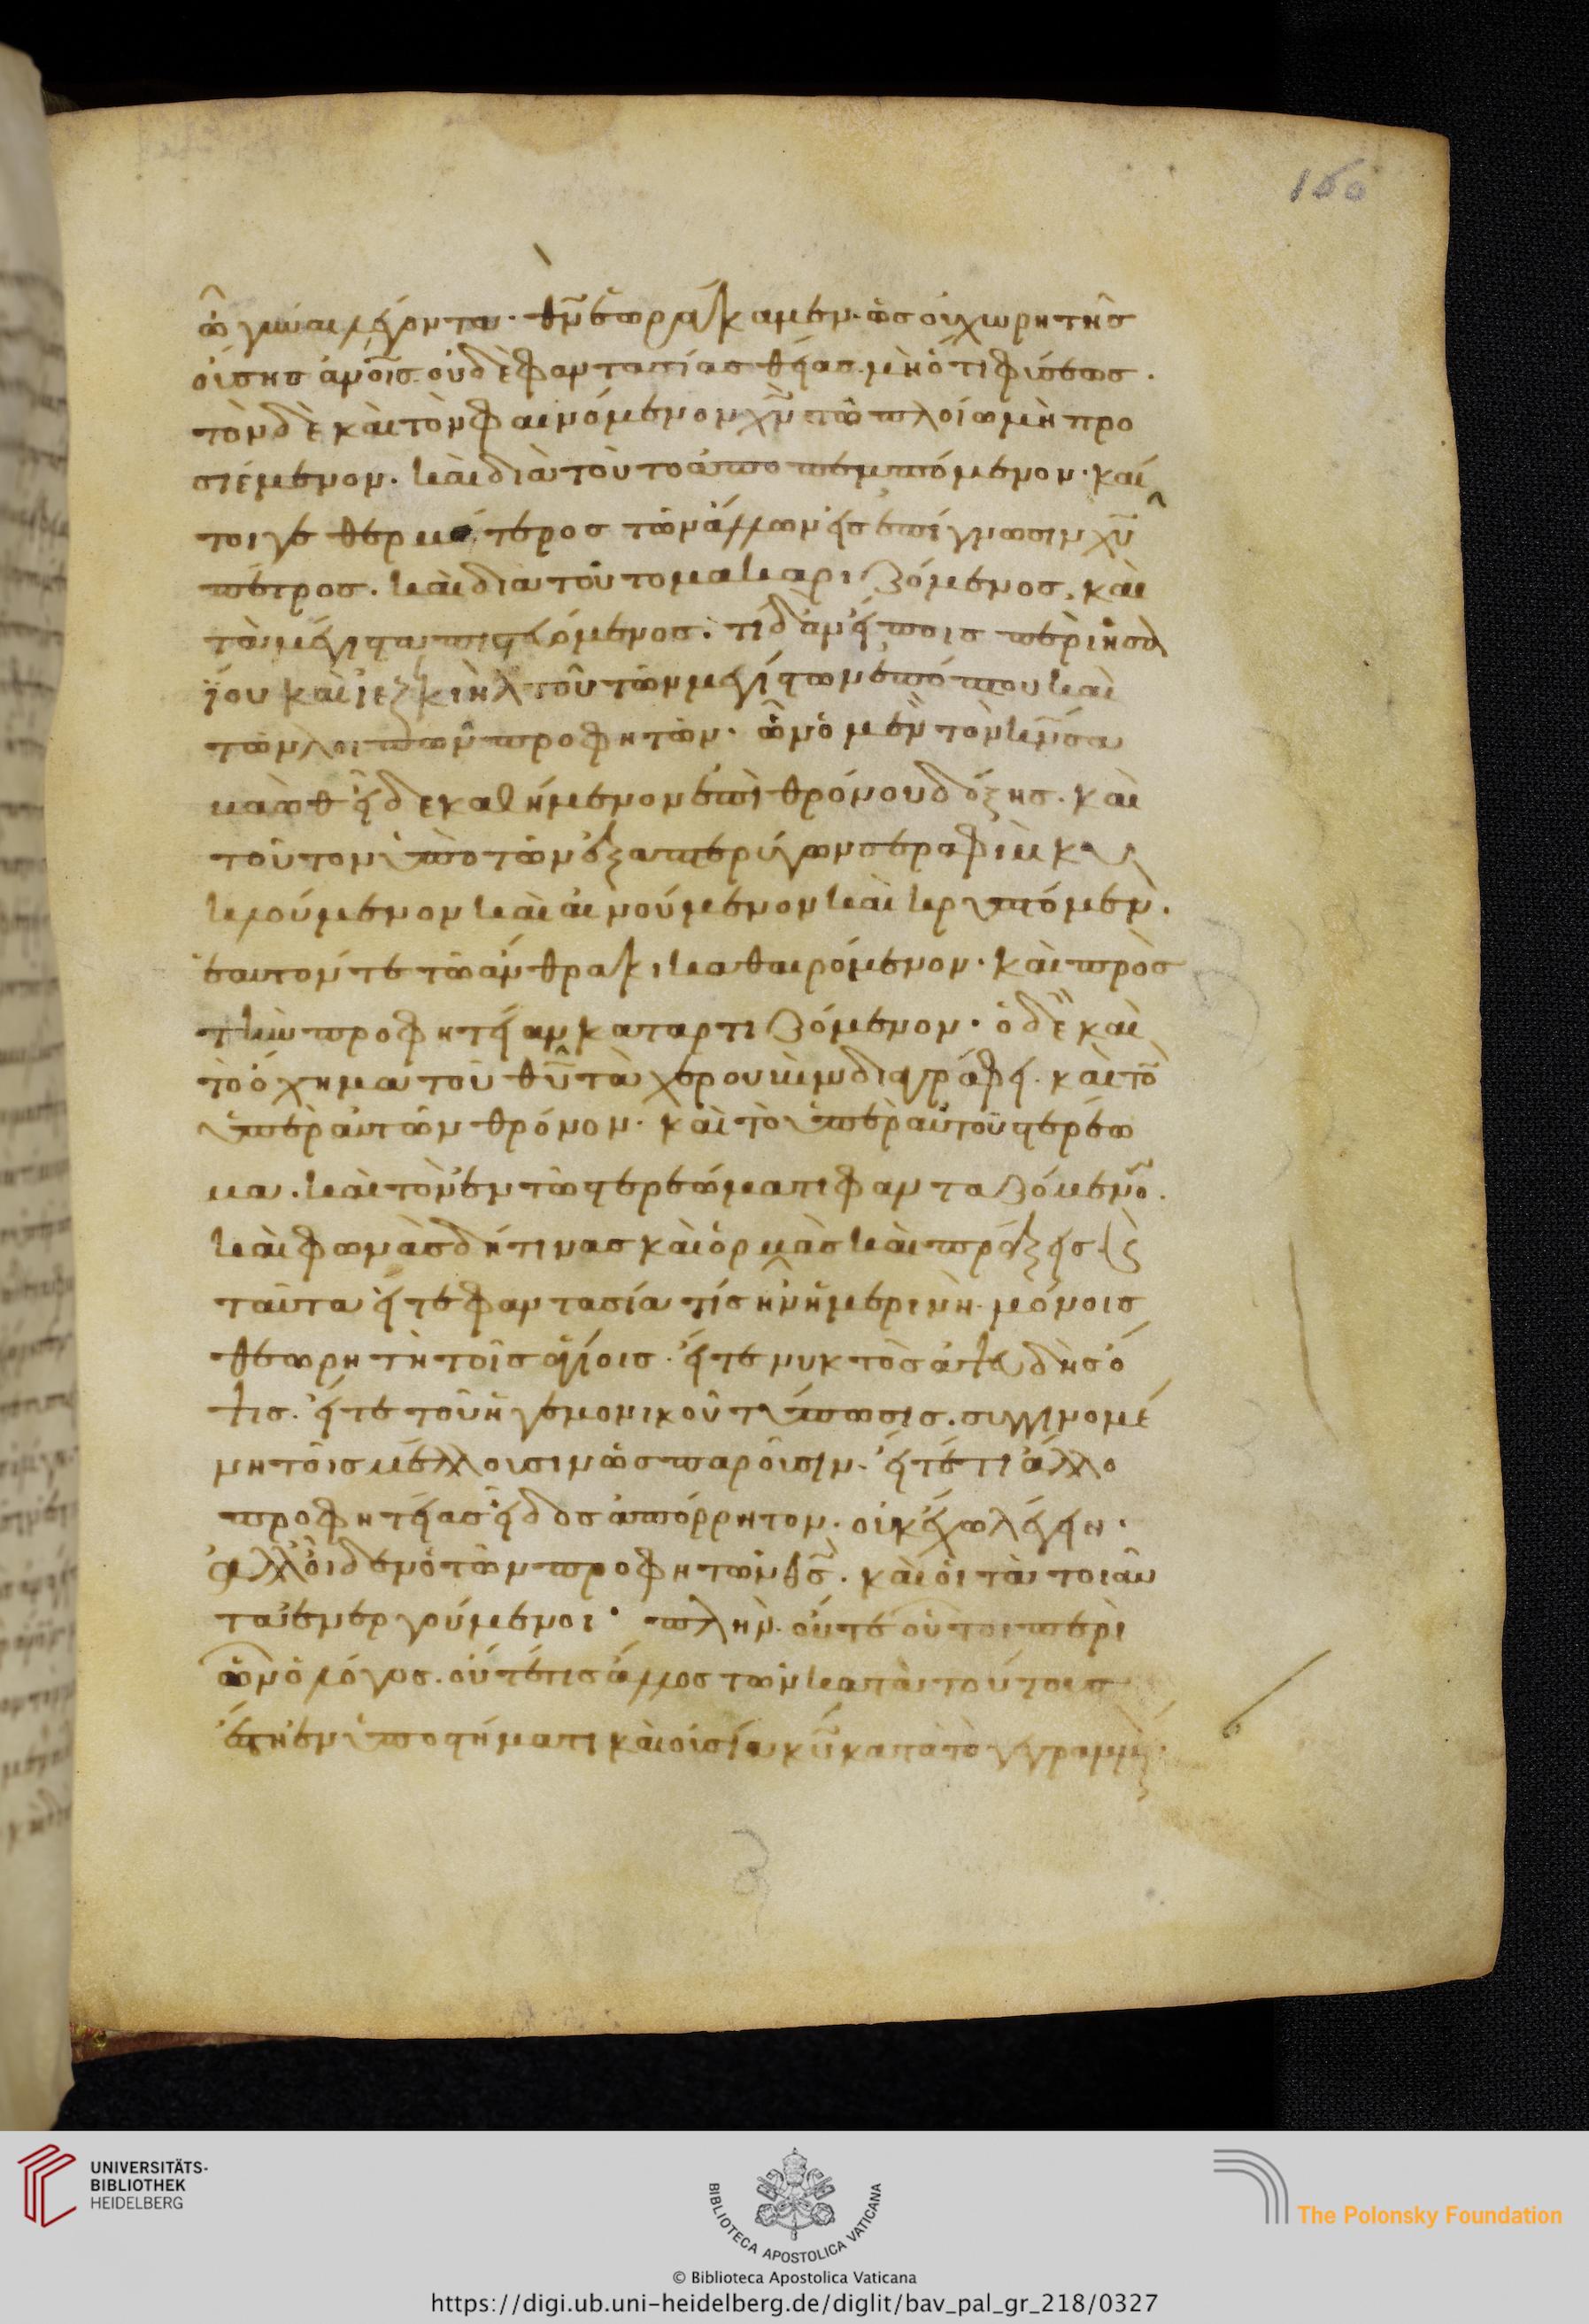 160
ὦ γύναι λέγοντα· θν̄ ἑωράκαμεν· ὡς οὐ χωρητῆς
οὔσης ἀνοις οὐδὲ φαντασίας θείας· μὴ ὅτι φύσεως.
τὸν δὲ καὶ τὸν φαινόμενον χν̄ τῶ πλοίω μὴ προ
σιέμενον. καὶ διὰ τοῦτο ἀποπεμπόμενον· καί
τοιγε θερμότερος τῶν ἄλλων εἰς ἐπίγνωσιν χῡ
πέτρος. καὶ διὰ τοῦτο μακαριζόμενος, καὶ
τὰ μέγιστα πιστευόμενος. τί δ' ἂν εἴποις περὶ ἡσα
ΐου καὶ ἰεζεκιὴλ τοῦ τῶν μεγίστων ἐπόπτου καὶ
τῶν λοιπῶν προφητῶν· ὧν ὁ μὲν τὸν κν̄ σα
βαὼθ εἶδε καθήμενον ἐπὶ θρόνου δόξης. καὶ
τοῦτον ὑπὸ τῶν ἑξαπτερύγων σεραφὶμ κυ
κλούμενον καὶ αἰνούμενον καὶ κρυπτόμεν.
ἑαυτόν τε τῶ ἄνθρακι καθαιρόμενον. καὶ πρὸς
τὴν προφητείαν καταρτιζόμενον. ὁ δὲ καὶ
τὸ ὄχημα τοῦ θῡ τὰ χερουβὶμ διαγράφει. καὶ τὸ
ὑπὲρ αὐτῶν θρόνον. καὶ τὸ ὑπὲρ αὐτοῦ στερέω
μα. καὶ τὸν ἐν τῶ στερεώματι φανταζόμενο.
καὶ φωνὰς δή τινας καὶ ὁρμὰς καὶ πράξεις. καὶ
ταῦτα εἴτε φαντασία τίς ἦν ἡμερινὴ· μόνοις
θεωρητὴ τοῖς ἁγίοις· εἴτε νυκτὸς ἀψευδὴς ὄ
ψις. εἴτε τοῦ ἡγεμονικοῦ τύπωσις. συγγινομέ
νη τοῖς μέλλουσιν ὡς παροῦσιν. εἴτέ τι ἄλλο
προφητείας εἶδος ἀπόρρητον. οὐκ ἔχω λέγειν.
ἀλλ' οἶδεν ὁ τῶν προφητῶν θς̄. καὶ οἱ τὰ τοιαῦ
τα ἐνεργούμενοι· πλὴν οὔτε οὗτοι περὶ
ὧν ὁ λόγος. οὔτέ τις ἄλλος τῶν κατὰ τούτους
ἔστη ἐν ὑποστήματι καὶ οὐσία κῡ κατὰ τὸ γεγραμμ
UNIVERSITÄTS-
BIBLIOTHEK
HEIDELBERG
BIBLIOTECA APOSTOLICA VATICANA
© Biblioteca Apostolica Vaticana
The Polonsky Foundation
https://digi.ub.uni-heidelberg.de/diglit/bav_pal_gr_218/0327